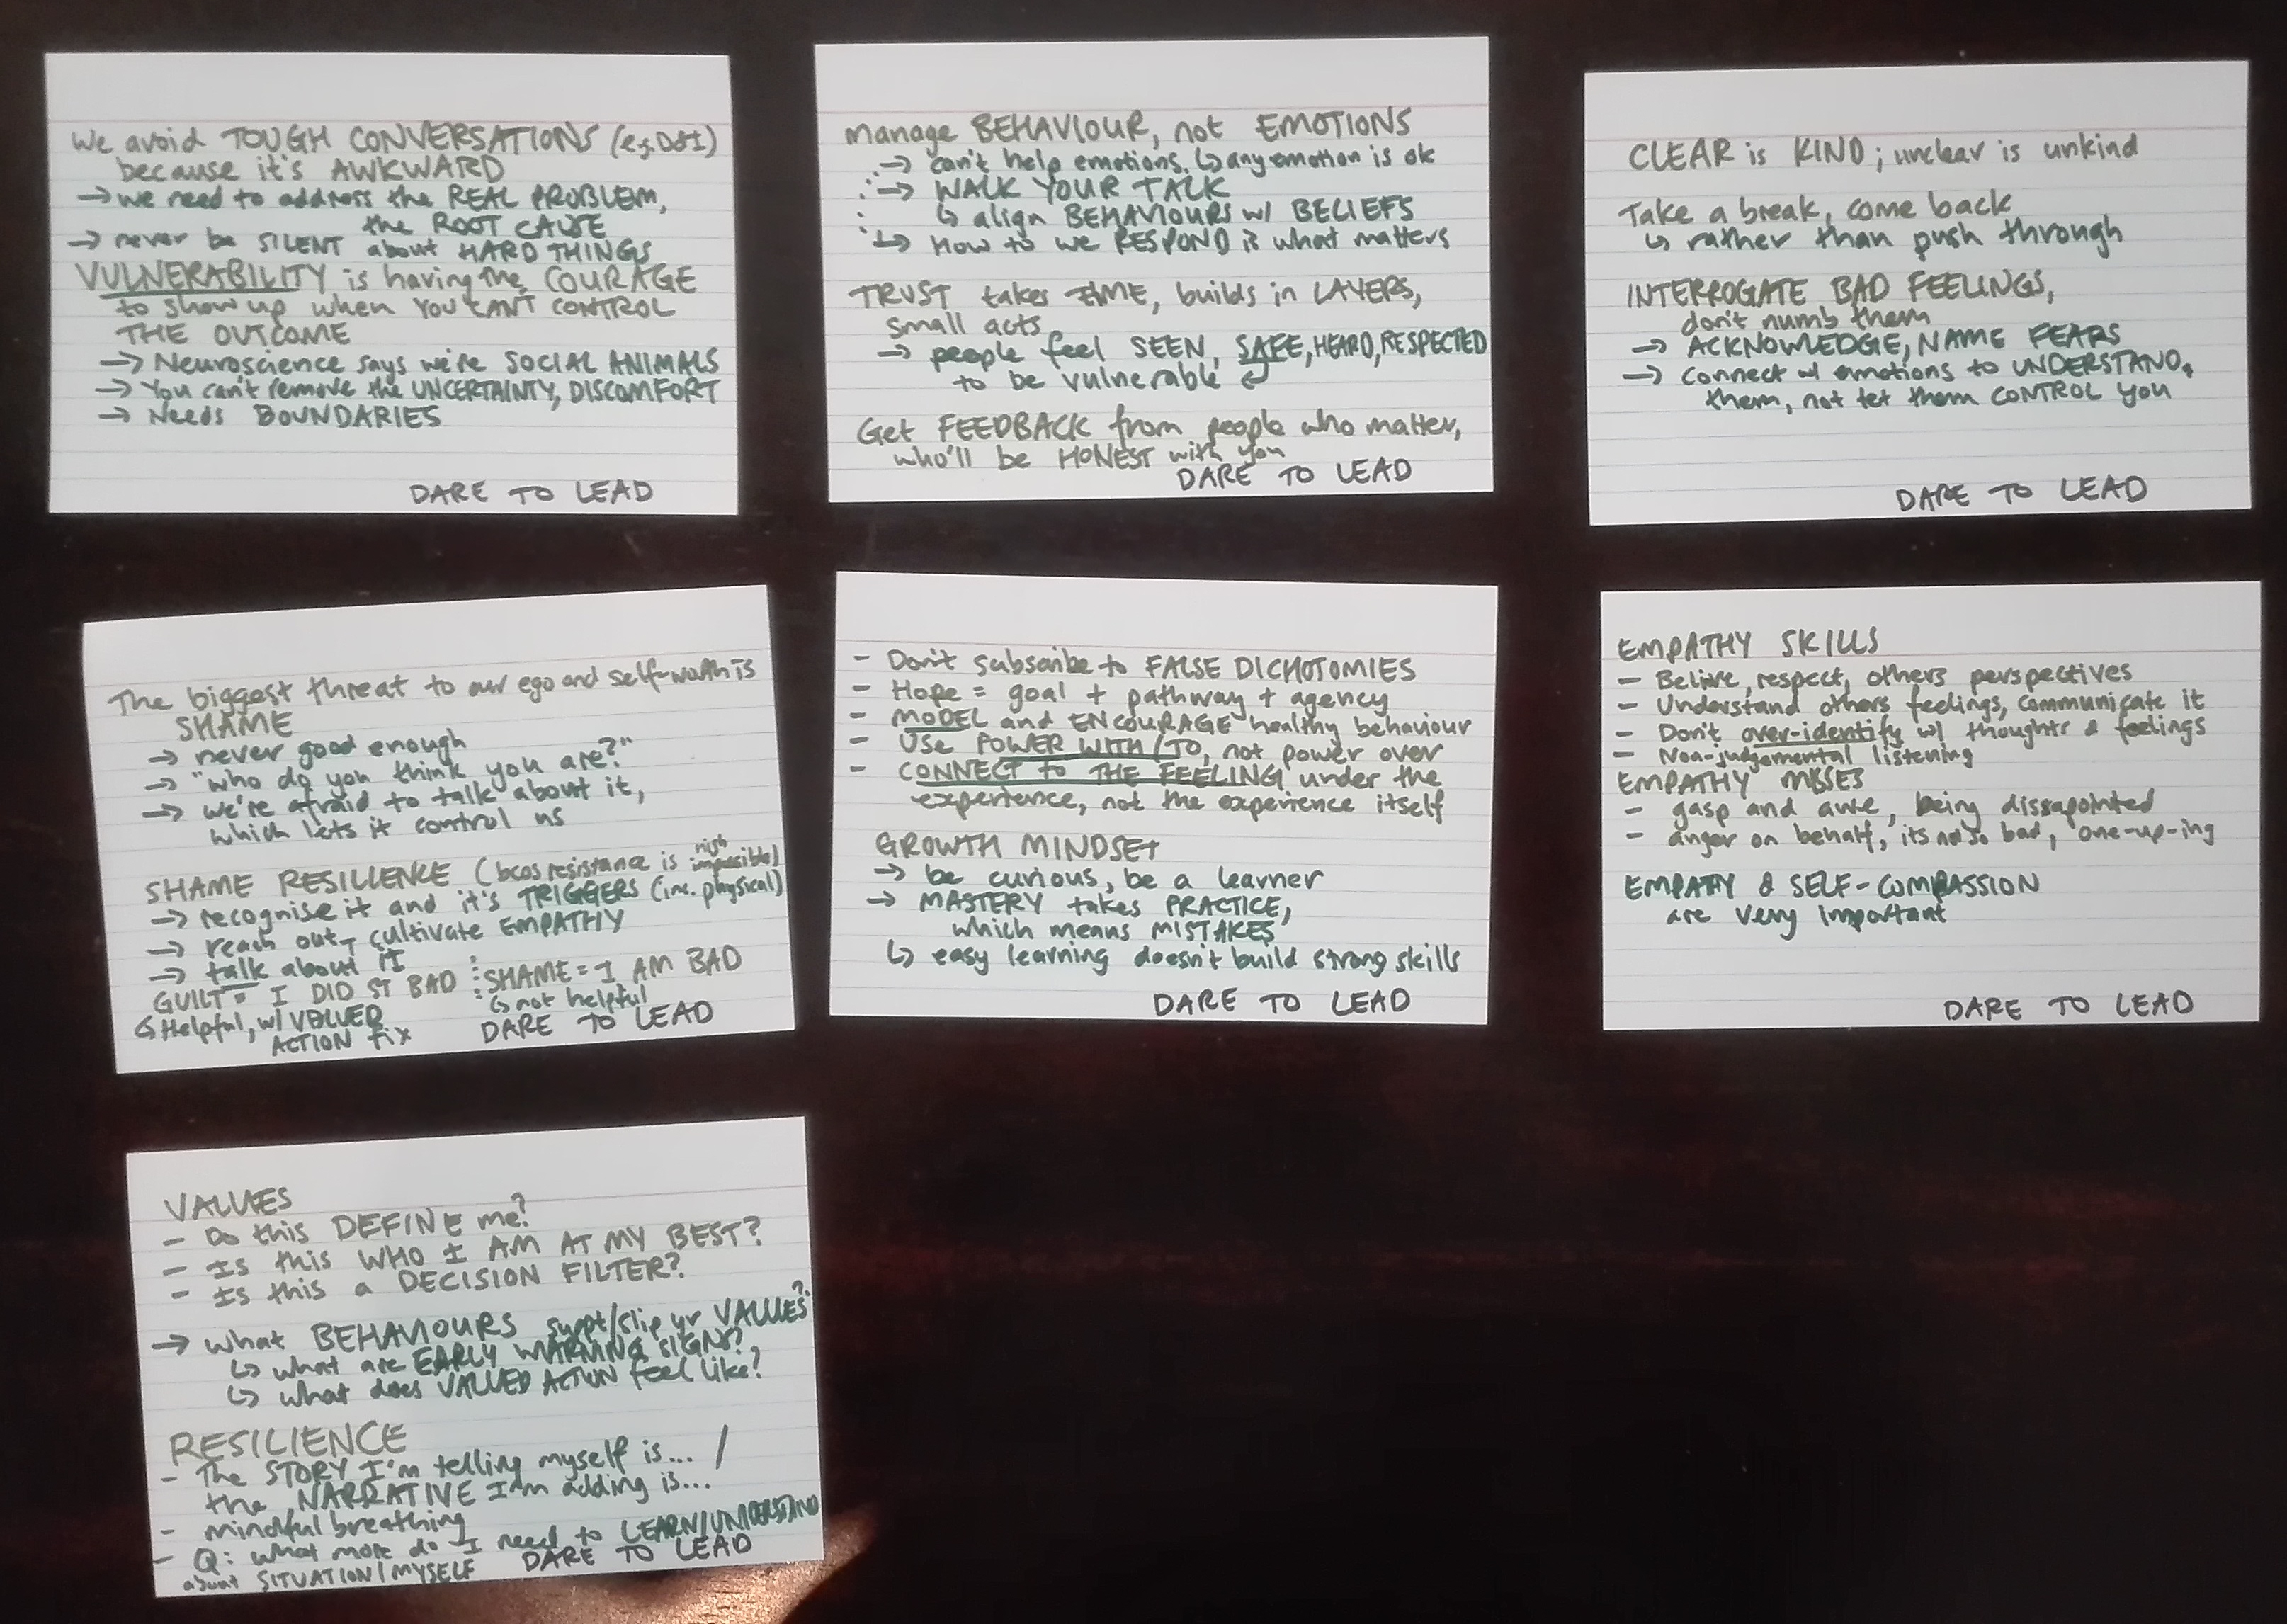 We avoid TOUGH CONVERSATIONS (e.g. D&I)
because it's AWKWARD
→ we need to address the REAL PROBLEM,
the ROOT CAUSE
→ never be SILENT about HARD THINGS
VULNERABILITY is having the COURAGE
to show up when YOU CAN'T CONTROL
THE OUTCOME
→ Neuroscience says we're SOCIAL ANIMALS
→ You can't remove the UNCERTAINTY, DISCOMFORT
→ Needs BOUNDARIES
DARE TO LEAD
manage BEHAVIOUR, not EMOTIONS
→ can't help emotions. ↳ any emotion is ok
→ WALK YOUR TALK
↳ align BEHAVIOURS w/ BELIEFS
↳ How to we RESPOND is what matters
TRUST takes TIME, builds in LAYERS,
small acts
→ people feel SEEN, SAFE, HEARD, RESPECTED
to be vulnerable ↵
Get FEEDBACK from people who matter,
who'll be HONEST with you
DARE TO LEAD
CLEAR is KIND; unclear is unkind
Take a break, come back
↳ rather than push through
INTERROGATE BAD FEELINGS,
don't numb them
→ ACKNOWLEDGE, NAME FEARS
→ connect w/ emotions to UNDERSTAND
them, not let them CONTROL you
DARE TO LEAD
The biggest threat to our ego and self-worth is
SHAME
→ never good enough
→ "who do you think you are?"
→ we're afraid to talk about it,
which lets it control us
SHAME RESILIENCE (bcos resistance is nigh impossible)
→ recognise it and it's TRIGGERS (inc. physical)
→ reach out, cultivate EMPATHY
→ talk about IT
GUILT = I DID ST BAD ⋮ SHAME = I AM BAD
↳ Helpful, w/ VALUED ACTION fix
↳ not helpful
DARE TO LEAD
- Don't subscribe to FALSE DICHOTOMIES
- Hope = goal + pathway + agency
- MODEL and ENCOURAGE healthy behaviour
- USE POWER WITH/TO, not power over
- CONNECT to THE FEELING under the
experience, not the experience itself
GROWTH MINDSET
→ be curious, be a learner
→ MASTERY takes PRACTICE,
which means MISTAKES
↳ easy learning doesn't build strong skills
DARE TO LEAD
EMPATHY SKILLS
- Believe, respect, others perspectives
- Understand others feelings, communicate it
- Don't over-identify w/ thoughts & feelings
- Non-judgemental listening
EMPATHY MISSES
- gasp and awe, being dissapointed
- anger on behalf, its not so bad, one-up-ing
EMPATHY & SELF-COMPASSION
are very important
DARE TO LEAD
VALUES
- Do this DEFINE me?
- Is this WHO I AM AT MY BEST?
- Is this a DECISION FILTER?
→ what BEHAVIOURS suppt/slip yr VALUES?
↳ what are EARLY WARNING SIGNS?
↳ what does VALUED ACTION feel like?
RESILIENCE
- The STORY I'm telling myself is... /
the NARRATIVE I'm adding is...
- mindful breathing
- Q: what more do I need to LEARN/UNDERSTAND
about SITUATION/MYSELF
DARE TO LEAD